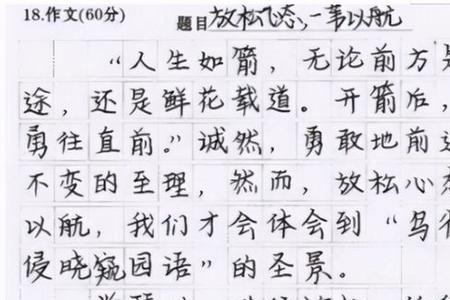 18.作文(60分) 题目 放松心态,一苇以航
“人生如箭，无论前方是
途，还是鲜花载道。开箭后，
勇往直前。”诚然，勇敢地前
不变的至理，然而，放松心态
以航，我们才会体会到“鸟
侵晓窥园语”的圣景。